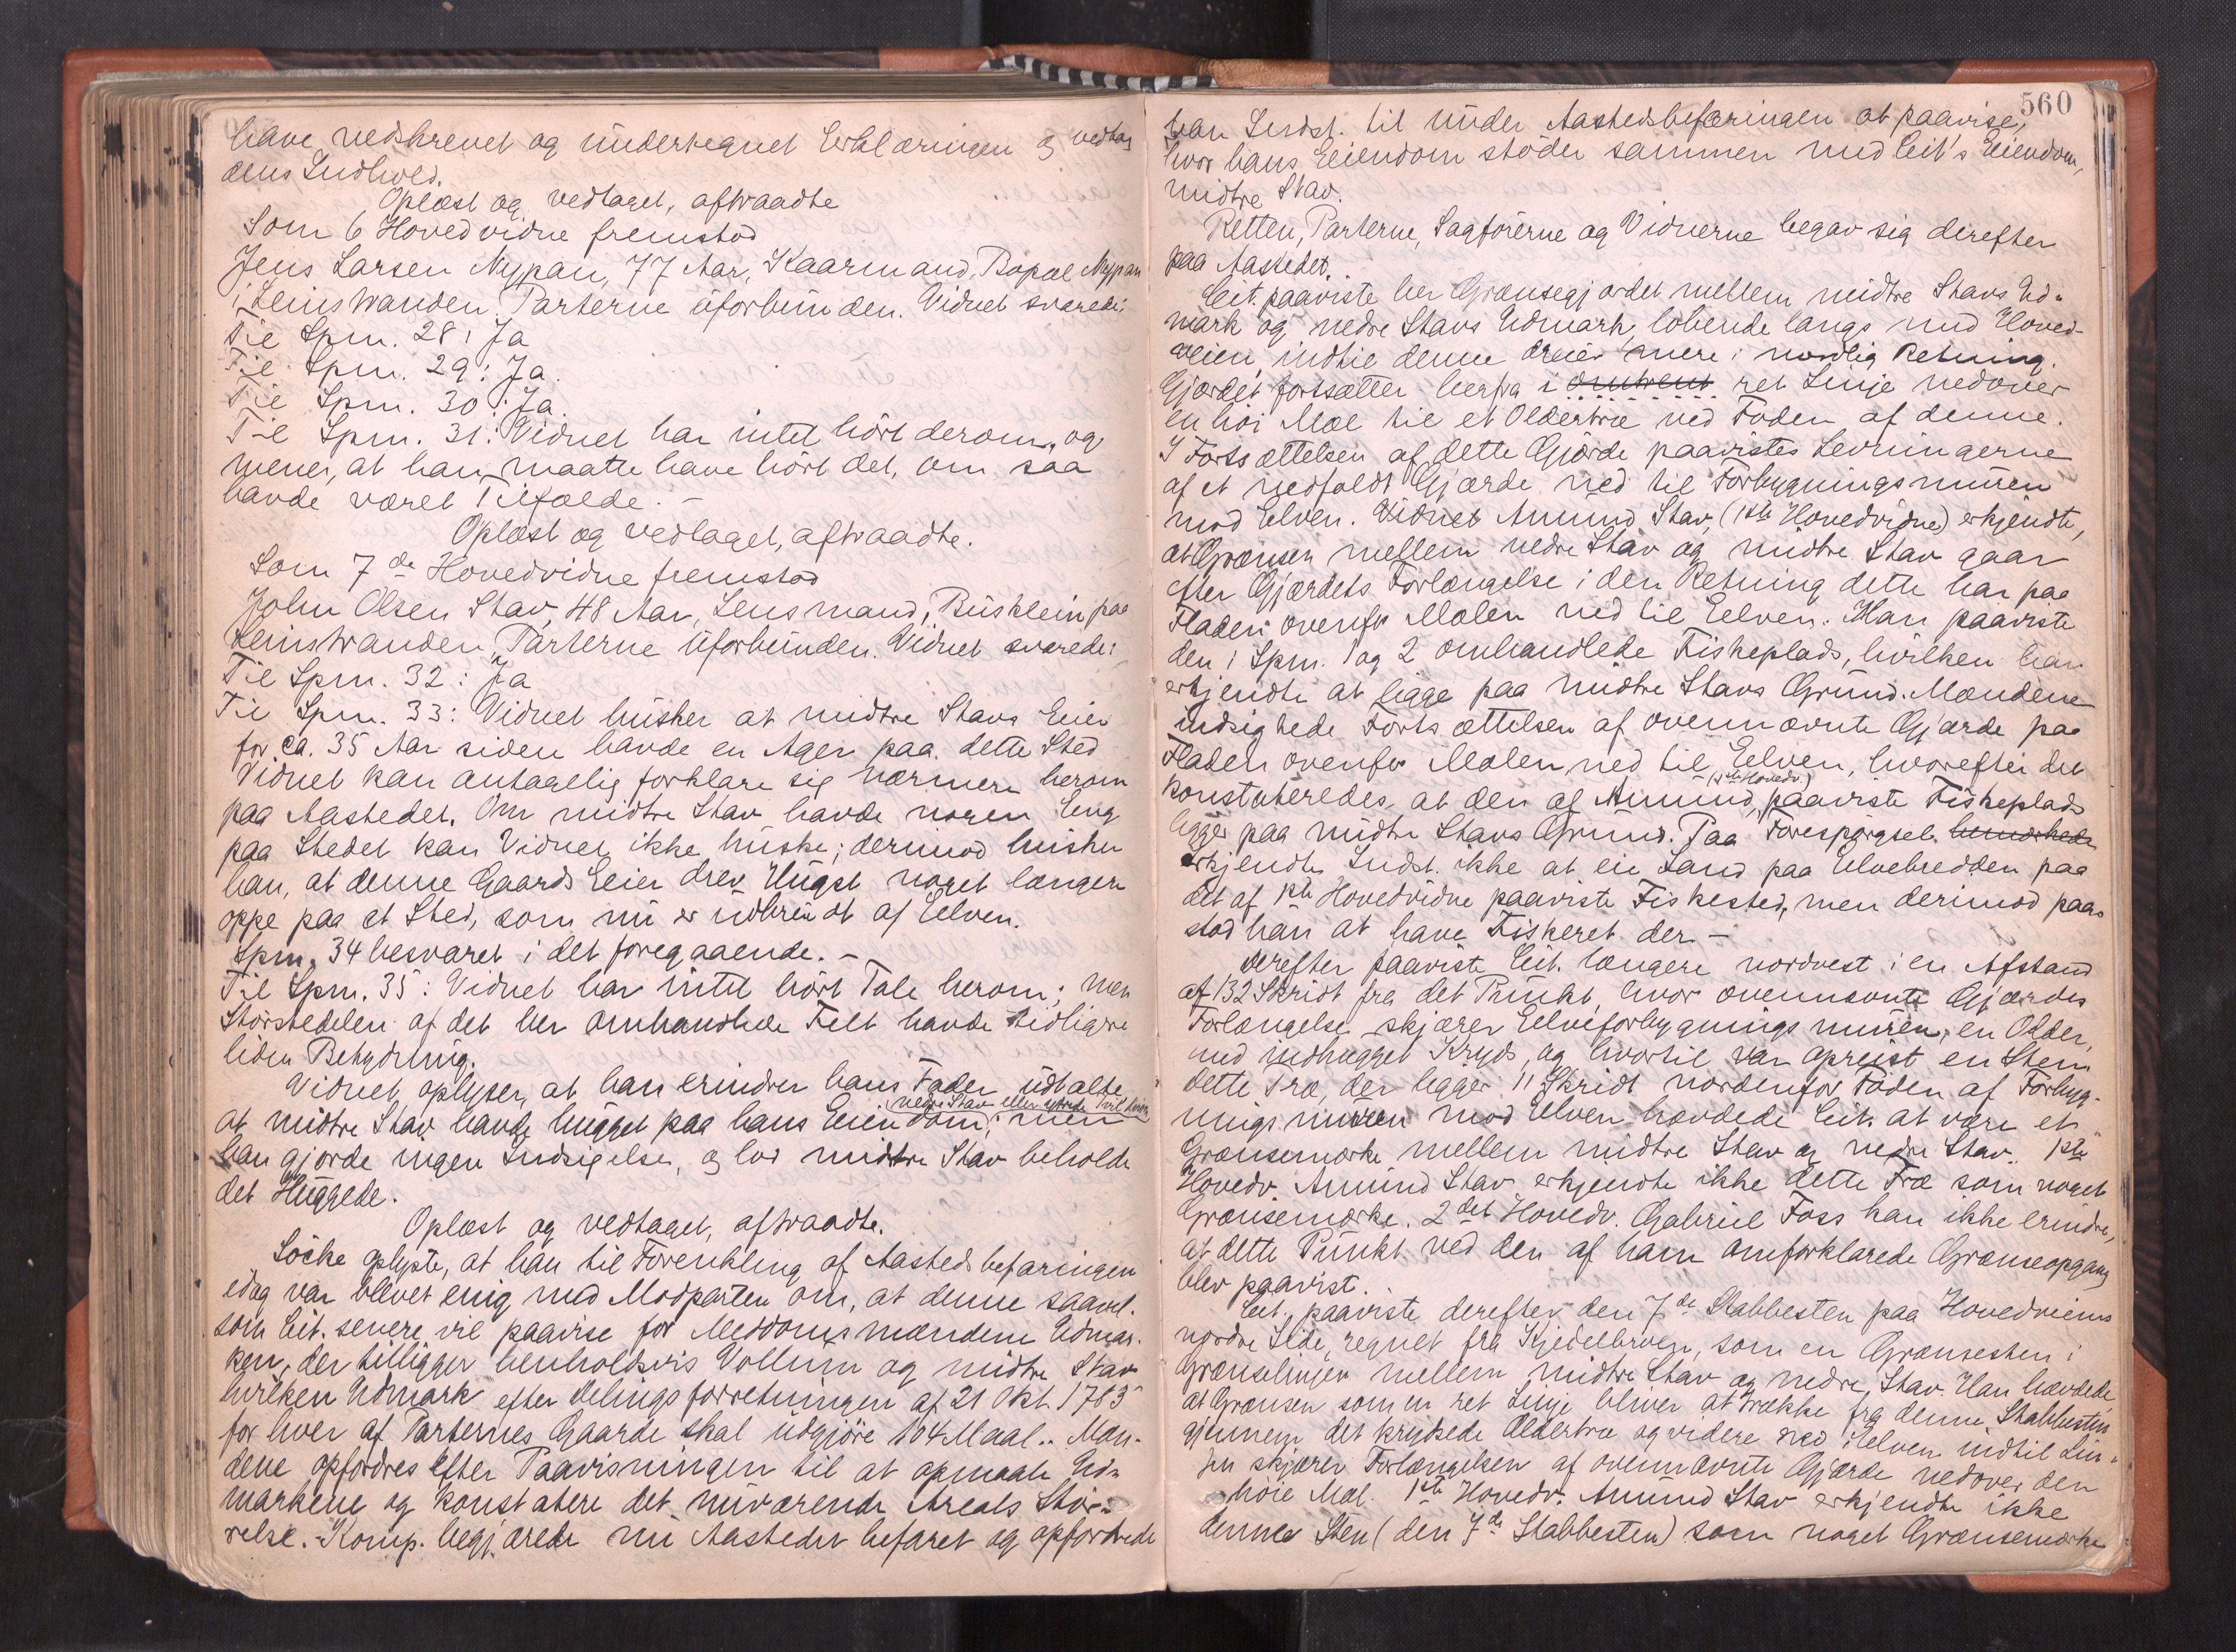 have nedskrevet og undertegnet Erklæringen og vedtog
dens Indhold.
Oplæst og vedtaget, aftraadte
Som 6 Hovedvidne fremstod
Jens Larsen Nypan, 77 Aar, Kaarmand, Bopæl Nypan
i Leinstranden Parterne uforbunden. Vidnet svarede:
Til Spm. 28: Ja
Til Spm. 29: Ja.
Til Spm. 30: Ja.
Til Spm. 31: Vidnet har intet hört derom, og
mener, at han maatte have hört det, om saa
havde været Tilfælde. –
Oplæst og vedtaget, aftraadte.
Som 7de Hovedvidne fremstod
John Olsen Stav, 48 Aar, Lensmand, Busklein paa
Leinstranden, Parterne uforbunden. Vidnet svarede:
Til Spm. 32: Ja
Til Spm. 33: Vidnet husker at midtre Stavs Eier
for ca. 35 Aar siden havde en Ager paa dette Sted
Vidnet kan antagelig forklare sig nærmere herom
paa Aastedet. Om midtre Stav havde nogen Eng
paa Stedet kan Vidnet ikke huske; derimod husker
han, at denne Gaards Eier drev Hugst noget længere
oppe paa et Sted, som nu er udbrudt af Elven.
Spm. 34 besvaret i det foregaaende. –
Til Spm. 35: Vidnet har intet hört Tale herom; men
Störstedelen af det her omhandlede Felt havde tidligere
liden Betydning.
Vidnet oplyser, at han erindrer hans Fader udtalte
nedre Stav eller
at midtre Stav havde hugget paa hans Eiendom; men
han gjorde ingen Indsigelse, og lod midtre Stav beholde
det Huggede.
Oplæst og vedtaget, aftraadte.
Löcke oplyste, at han til Forenkling af Aastedsbefaringen
idag var blevet enig med Modparten om, at denne saavel
som Cit. senere vil paavise for Meddomsmændene Udmar-
ken, der tilligger henholdsvis Vollum og midtre Stav
hvilken Udmark efter Delingsforretningen af 21 Okt. 1783
for hver af Parternes Gaarde skal udgjöre 104 Maal. Mæn-
dene opfordres efter Paavisningen til at opmaale Ud-
markene og konstatere det nuværende Areals Stör-
relse. – Komp. begjærede nu Aastedet befaret og opfordrede
560
han Indst. til under Aastedsbefaringen at paavise,
hvor hans Eiendom stöder sammen med Cit's Eiendom,
midtre Stav.
Retten, Parterne, Sagförerne og Vidnerne begav sig derefter
paa Aastedet.
Cit. paaviste her Grænsegjærdet mellem midtre Stavs Ud-
mark og nedre Stavs Udmark, löbende langs med Hoved-
veien, indtil denne dreier mere i nordlig Retning.
Gjærdet fortsætter herfra i omtrent ret Linje nedover
en höi Mæl til et Oldertræ ved Foden af denne.
I Fortsættelsen af dette Gjærde paavistes Levningerne
af et nedfaldt Gjærde ned til Forbygningsmuren
mod Elven. Vidnet Amund Stav, (1ste Hovedvidne) erkjendte,
at Grænsen mellem nedre Stav og midtre Stav gaar
efter Gjærdets Forlængelse i den Retning dette har paa
Fladen ovenfor Mælen ned til Elven. Han paaviste
den i Spm. 1 og 2 omhandlede Fiskeplads, hvilken han
erkjendte at ligge paa midtre Stavs Grund. Mændene
indsigtede Fortsættelsen af ovennævnte Gjærde paa
Fladen ovenfor Mælen, ned til Elven, hvorefter det
(1ste Hovedv.)
konstateredes, at den af Amund, paaviste Fiskeplads
ligger paa midtre Stavs Grund. Paa Forespörgsel bemærkede
erkjendte Indst. ikke at eie Land paa Elvebredden paa
det af 1ste Hovedvidne paaviste Fiskested, men derimod paa-
stod han at have Fiskeret der –
Derefter paaviste Cit. længere nordvest i en Afstand
af 132 Skridt fra det Punkt, hvor ovennævnte Gjærdes
Forlængelse skjærer Elveforbygningsmuren, en Older,
med indhugget Kryds, og hvortil var opreist en Sten
dette Træ, der ligger 11 Skridt nordenfor Foden af Forbyg-
ningsmuren mod Elven hævdede Cit. at være et
Grænsemærke mellem midtre Stav og nedre Stav. 1ste
Hovedv. Amund Stav erkjendte ikke dette Træ som noget
Grænsemærke. 2det Hovedv. Gabriel Foss kan ikke erindre,
at dette Punkt ved den af ham omforklarede Grænseopgang
blev paavist.
Cit. paaviste derefter den 7de Stabbesten paa Hovedveiens
nordre Side, regnet fra Kjedelbroen, som en Grænsesten i
Grænselinjen mellem midtre Stav og nedre Stav. Han hævdede
at Grænsen som en ret Linje bliver at trække fra denne Stabbesten
gjennem det krydsede Oldertræ og videre ned i Elven indtil Lin-
jen skjærer Forlængelsen af ovennævnte Gjærde nedover den
höie Mæl. 1ste Hovedv. Amund Stav erkjendte ikke
denne Sten (den 7de Stabbesten) som noget Grænsemærke